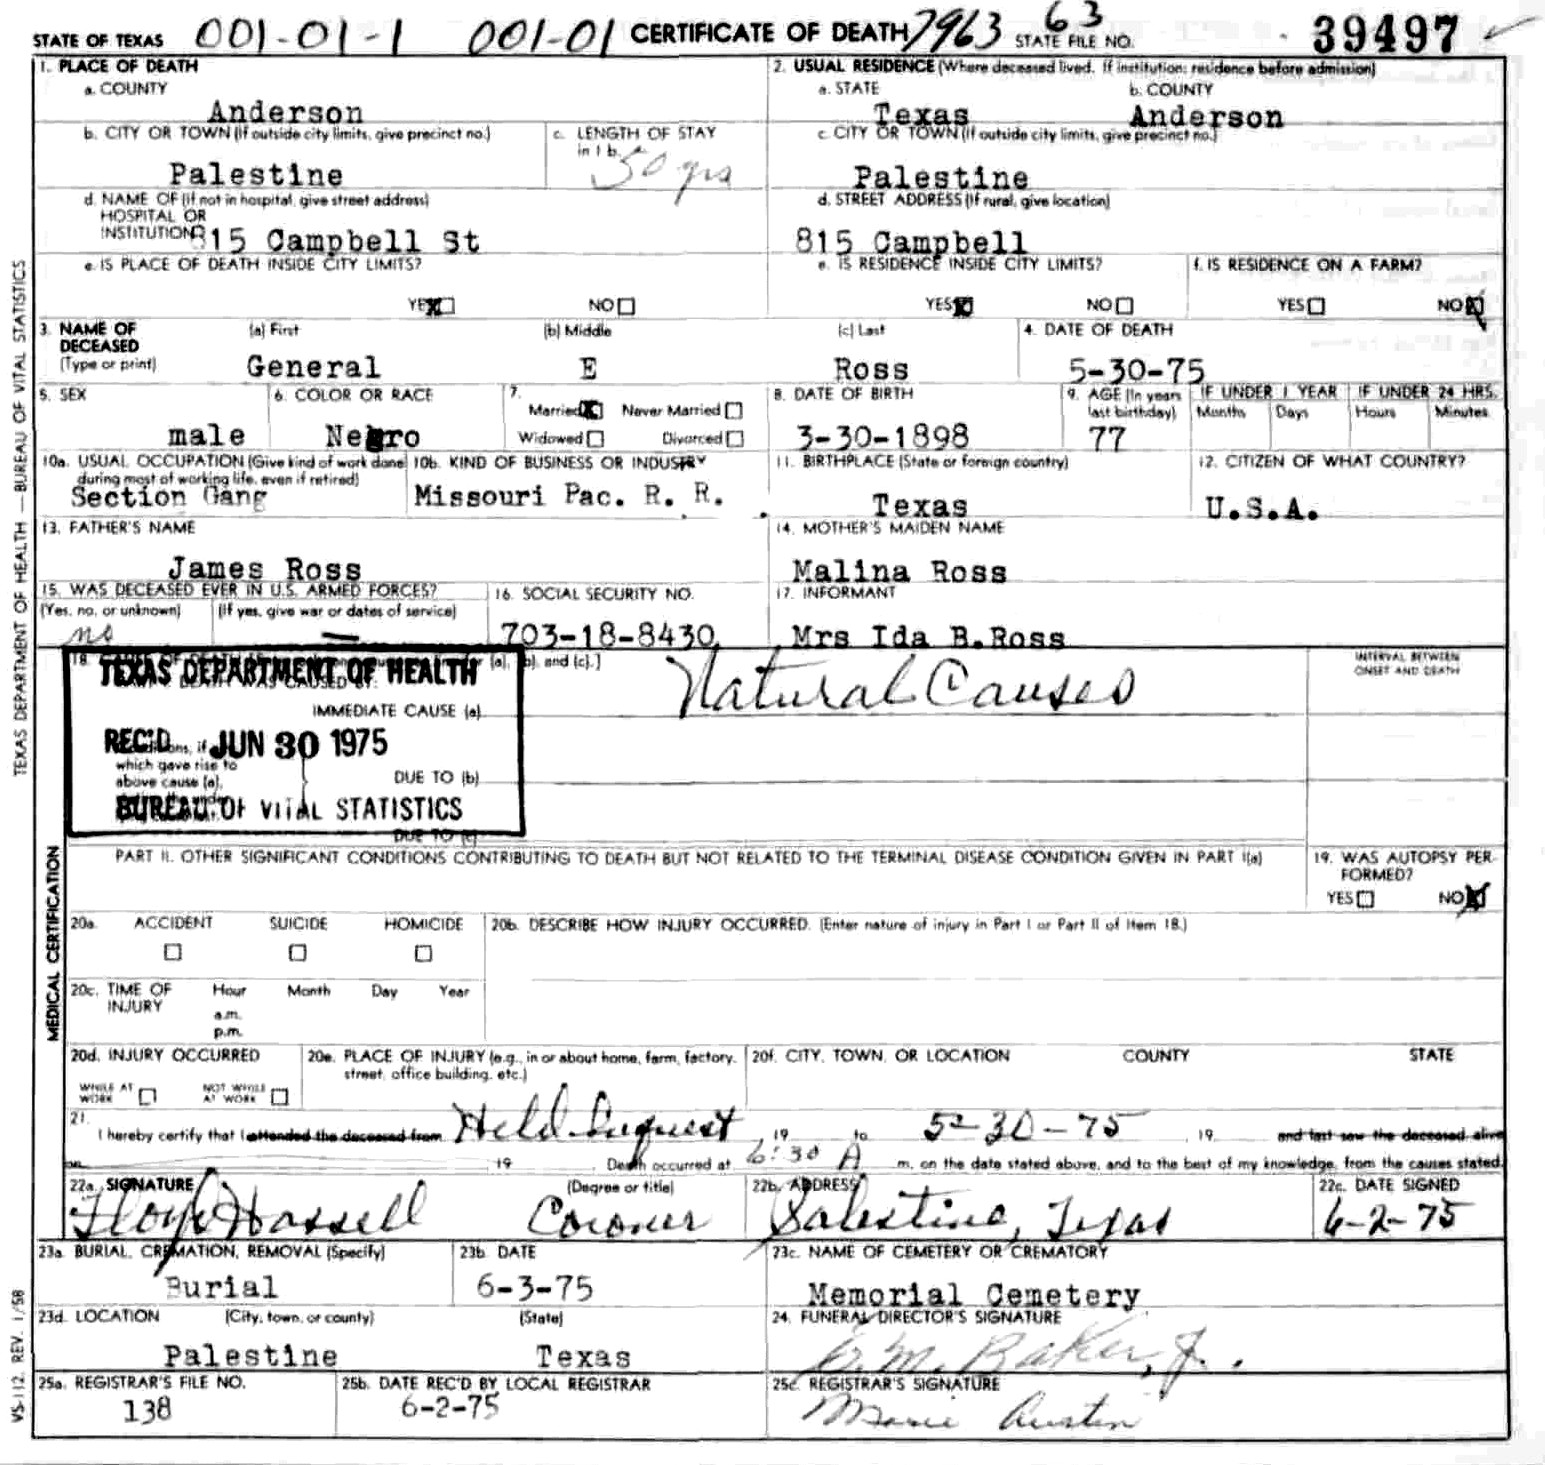 STATE OF TEXAS 001-01-1 001-01 CERTIFICATE OF DEATH 7963 63 STATE FILE NO. 39497
1. PLACE OF DEATH
a. COUNTY
Anderson
2. USUAL RESIDENCE (Where deceased lived. If institution: residence before admission)
a. STATE b. COUNTY
Texas Anderson
b. CITY OR TOWN (If outside city limits, give precinct no.)
Palestine
c. LENGTH OF STAY
in 1 b.
50 yrs
c. CITY OR TOWN (If outside city limits, give precinct no.)
Palestine
d. NAME OF (If not in hospital, give street address)
HOSPITAL OR
INSTITUTION 815 Campbell St
d. STREET ADDRESS (If rural, give location)
815 Campbell
e. IS PLACE OF DEATH INSIDE CITY LIMITS?
YES NO
e. IS RESIDENCE INSIDE CITY LIMITS?
YES NO
f. IS RESIDENCE ON A FARM?
YES NO
3. NAME OF
DECEASED
(Type or print)
(a) First (b) Middle (c) Last
General E Ross
4. DATE OF DEATH
5-30-75
5. SEX
male
6. COLOR OR RACE
Negro
7.
Married Never Married
Widowed Divorced
8. DATE OF BIRTH
3-30-1898
9. AGE (In years
last birthday)
77
IF UNDER 1 YEAR
Months Days
IF UNDER 24 HRS.
Hours Minutes
10a. USUAL OCCUPATION (Give kind of work done
during most of working life, even if retired)
Section Gang
10b. KIND OF BUSINESS OR INDUSTRY
Missouri Pac. R. R.
11. BIRTHPLACE (State or foreign country)
Texas
12. CITIZEN OF WHAT COUNTRY?
U.S.A.
13. FATHER'S NAME
James Ross
14. MOTHER'S MAIDEN NAME
Malina Ross
15. WAS DECEASED EVER IN U.S. ARMED FORCES?
(Yes, no, or unknown) (If yes, give war or dates of service)
no —
16. SOCIAL SECURITY NO.
703-18-8430
17. INFORMANT
Mrs Ida B.Ross
18. (a), (b), and (c).]
TEXAS DEPARTMENT OF HEALTH
DEATH WAS CAUSED BY:
IMMEDIATE CAUSE (a) Natural Causes
INTERVAL BETWEEN
ONSET AND DEATH
REC'D JUN 30 1975
which gave rise to
above cause (a),
DUE TO (b)
BUREAU OF VITAL STATISTICS
DUE TO (c)
PART II. OTHER SIGNIFICANT CONDITIONS CONTRIBUTING TO DEATH BUT NOT RELATED TO THE TERMINAL DISEASE CONDITION GIVEN IN PART I(a)
19. WAS AUTOPSY PER-
FORMED?
YES NO
20a. ACCIDENT SUICIDE HOMICIDE
20b. DESCRIBE HOW INJURY OCCURRED. (Enter nature of injury in Part I or Part II of Item 18.)
20c. TIME OF
INJURY
Hour Month Day Year
a.m.
p.m.
20d. INJURY OCCURRED
WHILE AT
WORK
NOT WHILE
AT WORK
20e. PLACE OF INJURY (e.g., in or about home, farm, factory,
street, office building, etc.)
20f. CITY, TOWN, OR LOCATION COUNTY STATE
21.
I hereby certify that I attended the deceased from Held Inquest, 19 to 5-30-75, 19 and last saw the deceased alive
on 19 . Death occurred at 6:30 A m, on the date stated above, and to the best of my knowledge, from the causes stated.
22a. SIGNATURE (Degree or title)
Floyd Hassell Coroner
22b. ADDRESS
Palestine, Texas
22c. DATE SIGNED
6-2-75
23a. BURIAL, CREMATION, REMOVAL (Specify)
Burial
23b. DATE
6-3-75
23c. NAME OF CEMETERY OR CREMATORY
Memorial Cemetery
23d. LOCATION (City, town, or county) (State)
Palestine Texas
24. FUNERAL DIRECTOR'S SIGNATURE
M. Baker, Jr.
25a. REGISTRAR'S FILE NO.
138
25b. DATE REC'D BY LOCAL REGISTRAR
6-2-75
25c. REGISTRAR'S SIGNATURE
Marie Austin
TEXAS DEPARTMENT OF HEALTH — BUREAU OF VITAL STATISTICS
MEDICAL CERTIFICATION
VS-112 REV. 1/58